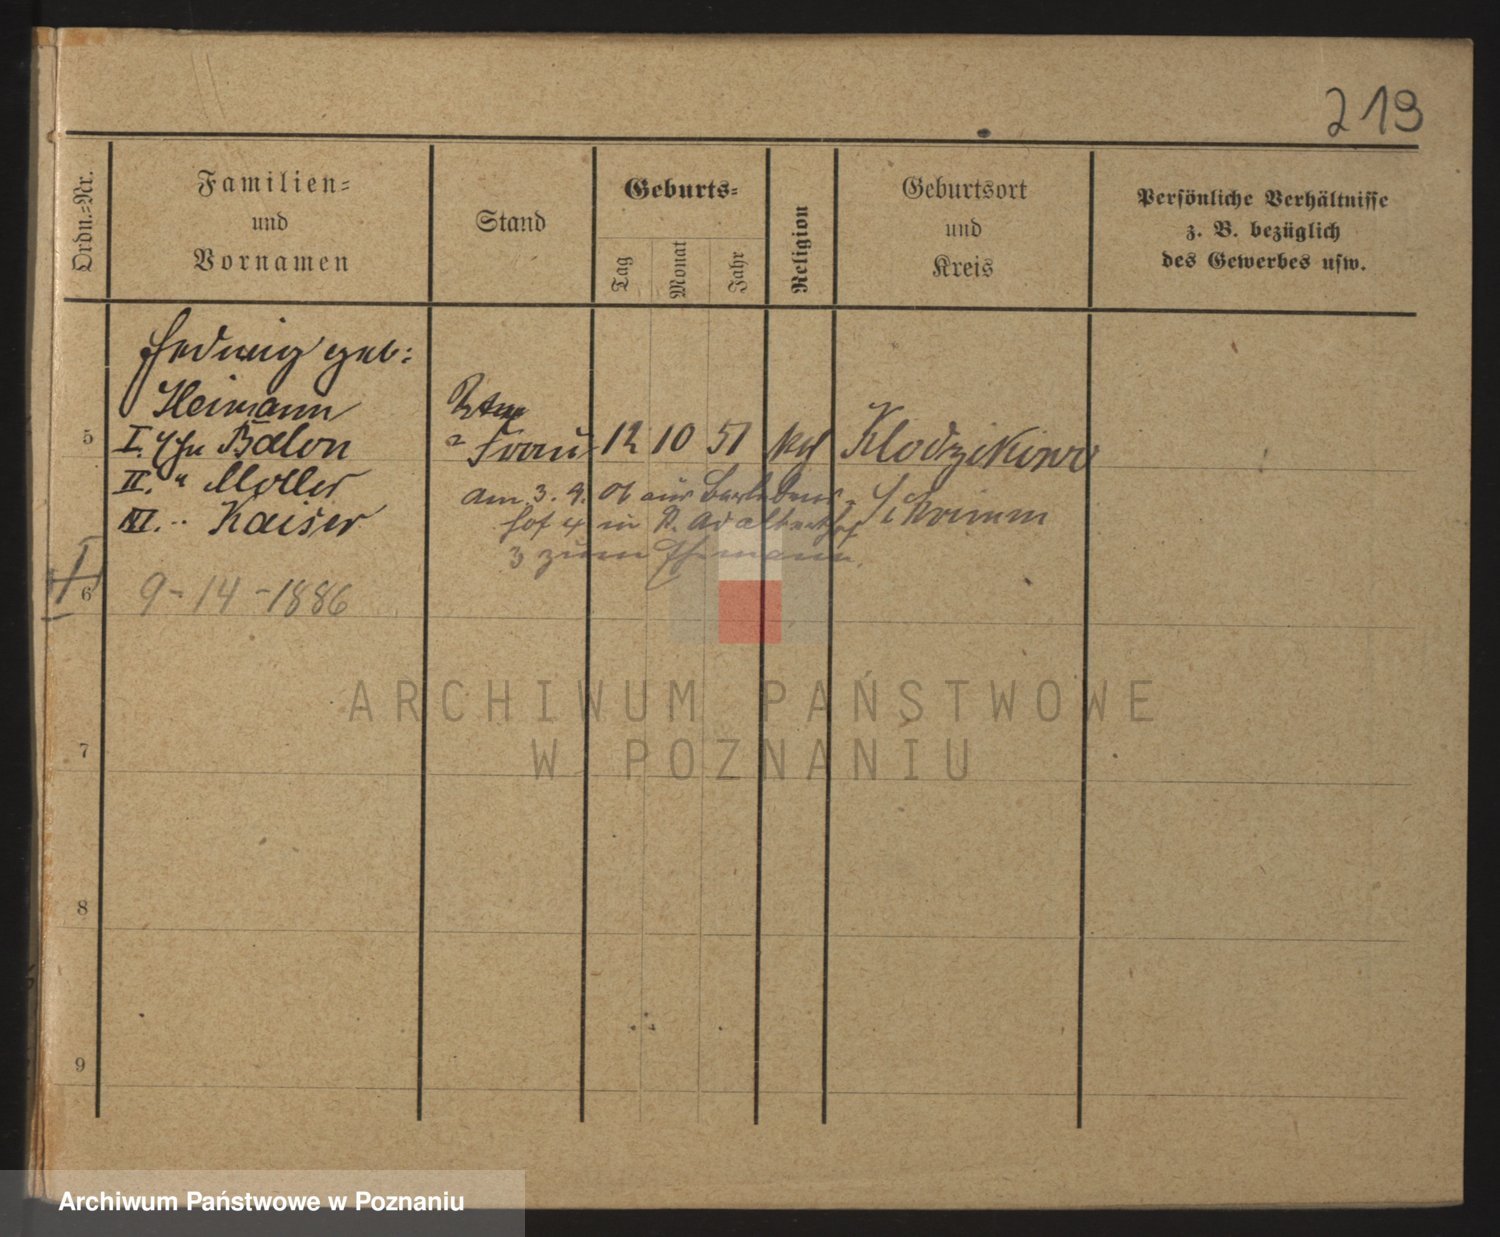 219
Ordn.=Nr.
Familien=
und
Vornamen
Stand
Geburts=
Tag
Monat
Jahr
Religion
Geburtsort
und
Kreis
Persönliche Verhältnisse
z. B. bezüglich
des Gewerbes usw.
Hedwig geb:
Heimann
5 I. Ehe Balon Frau 12 10 51 Klodzikowo
II. " Moller am 3. 9. 06 aus
III. " Kaiser Schrimm
hof 4 in P. Adalbertstr
3 zum Ehemann.
6 9-14-1886
ARCHIWUM PAŃSTWOWE
W POZNANIU
7
8
9
Archiwum Państwowe w Poznaniu